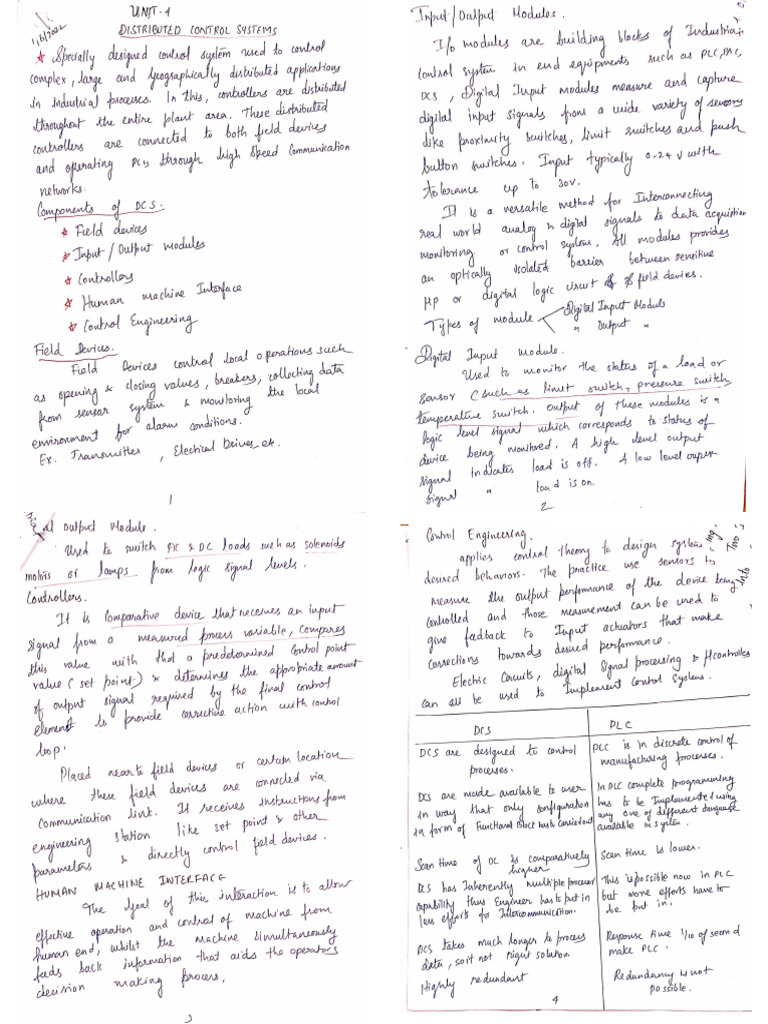 UNIT-4
1/6/2022
DISTRIBUTED CONTROL SYSTEMS
* Specially designed control system used to control
complex, large and Geographically distributed applications
in Industrial processes. In this, controllers are distributed
throughout the entire plant area. These distributed
controllers are connected to both field devices
and operating PCs through high speed Communication
networks.
Components of DCS:
* Field devices
* Input / Output modules
* Controllers
* Human machine Interface
* Control Engineering
Field Devices.
Field Devices control local operations such
as opening & closing valves, breakers, collecting data
from sensor system & monitoring the local
environment for alarm conditions.
Ex. Transmitter, Electrical Drives, etc.
1
Input / Output Modules.
I/o modules are building blocks of Industrial
control system in end equipments such as PLC, PAC,
DCS, Digital Input modules measure and capture
digital input signals from a wide variety of sensors
like proximity switches, limit switches and push
button switches. Input typically 0-24 V with
tolerance up to 30v.
It is a versatile method for Interconnecting
real world analog & digital signals to data acquisition
monitoring or control system, All modules provides
an optically isolated barrier between sensitive
MP or digital logic circuit & field devices.
Types of module
Digital Input Module
" Output "
Digital Input module.
Used to monitor the status of a load or
sensor (such as limit switch, pressure switch,
temperature switch. Output of these modules is a
logic level signal which corresponds to status of
device being monitored. A high level output
signal Indicates load is off. A low level output
signal " load is on.
2
Output Module.
Used to switch AC & DC loads such as solenoids
motors or lamps from logic signal levels.
Controllers.
It is Comparative device that receives an input
signal from a measured process variable, compares
this value with that a predetermined control point
value (set point) & determines the appropriate amount
of output signal required by the final control
element to provide corrective action with control
loop.
Placed near to field devices or certain location
where these field devices are connected via
Communication link. It receives Instructions from
engineering station like set point & other
parameters & directly control field devices.
HUMAN MACHINE INTERFACE
The Goal of this interaction is to allow
effective operation and control of machine from
human end, whilst the machine simultaneously
feeds back information that aids the operators
decision making process.
3
Control Engineering.
applies control theory to design system
desired behaviors. The practice use sensors to
measure the output performance of the device being
controlled and those measurement can be used to
give feedback to Input actuators that make
corrections towards desired performance.
Electric Circuits, digital Signal processing & µcontrollers
can all be used to Implement Control Systems.
DCS PLC
DCS are designed to control
processes.
PLC is in discrete control of
manufacturing processes.
DCS are made available to user
in way that only configuration
in form of Functional Block has to be carried out
In PLC complete programming
has to be Implemented using
any one of different language
available in system.
Scan time of DC is comparatively
higher
Scan time is lower.
DCS has Inherently multiple processor
capability thus Engineer has to put in
less efforts for Intercommunication.
This is possible now in PLC
but more efforts have to
be put in.
DCS takes much longer to process
data, so it not right solution
Response time 1/10 of second
make PLC.
Highly redundant
Redundancy is not
possible.
4